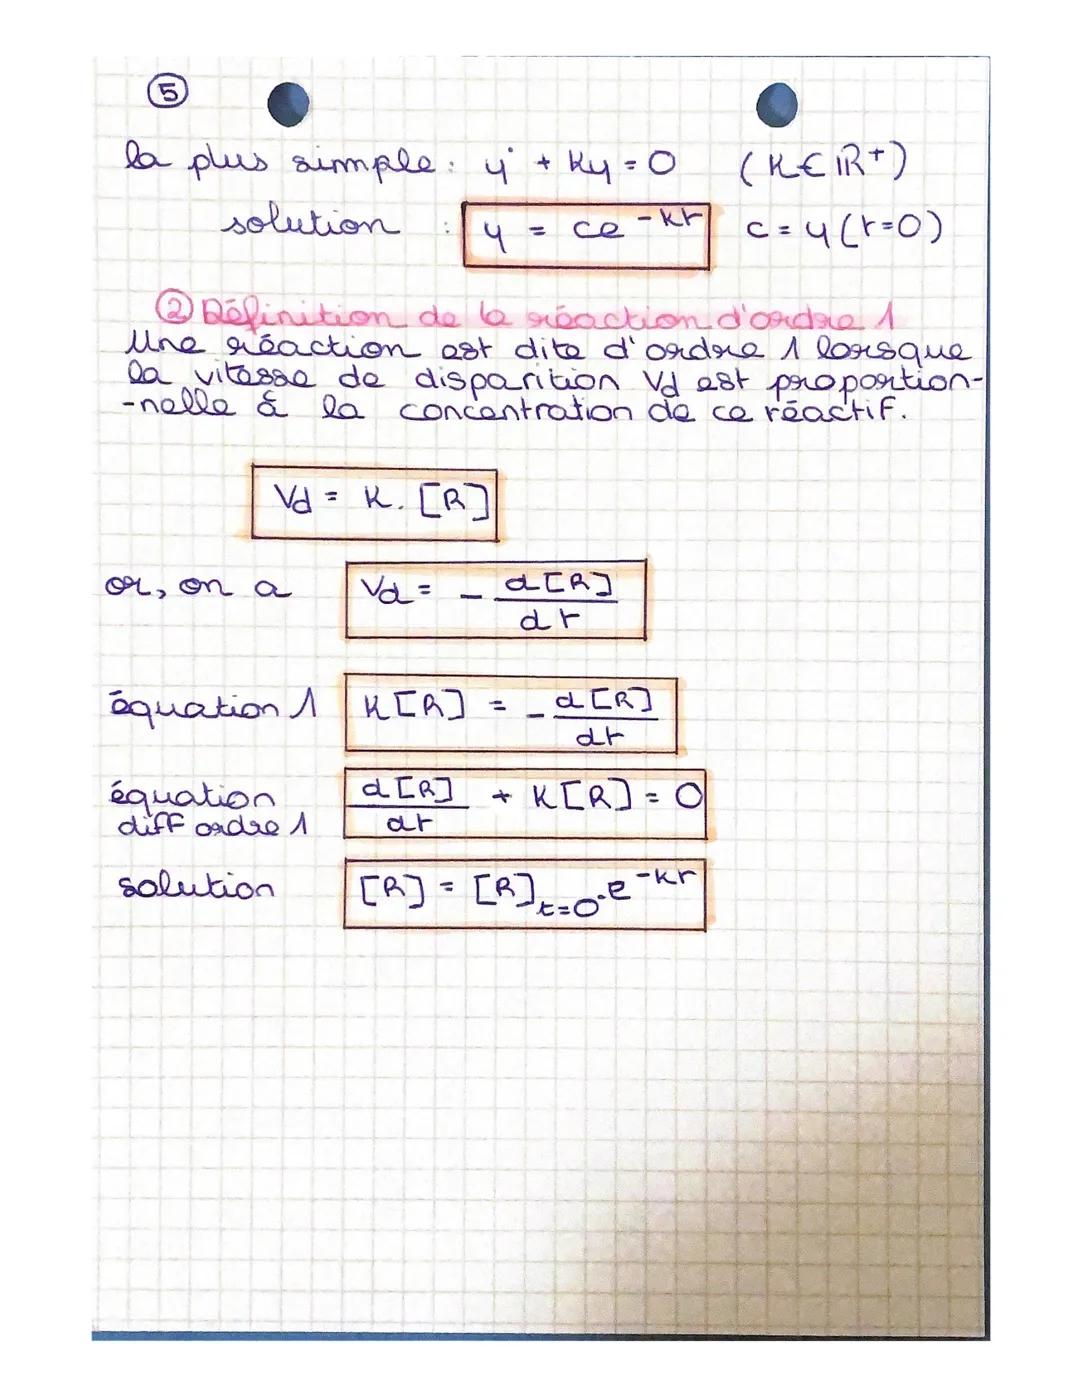 5
la plus simple : y' + Ky = 0 (K ∈ ℝ+)
solution : y = ce^-Kt c = y(t=0)
② Définition de la réaction d'ordre 1
Une réaction est dite d'ordre 1 lorsque
la vitesse de disparition Vd est proportion-
-nelle à la concentration de ce réactif.
Vd = K. [R]
or, on a Vd = - d[R]/dt
équation 1 K[R] = - d[R]/dt
équation diff ordre 1 d[R]/dt + K[R] = 0
solution [R] = [R]t=0 . e^-Kt